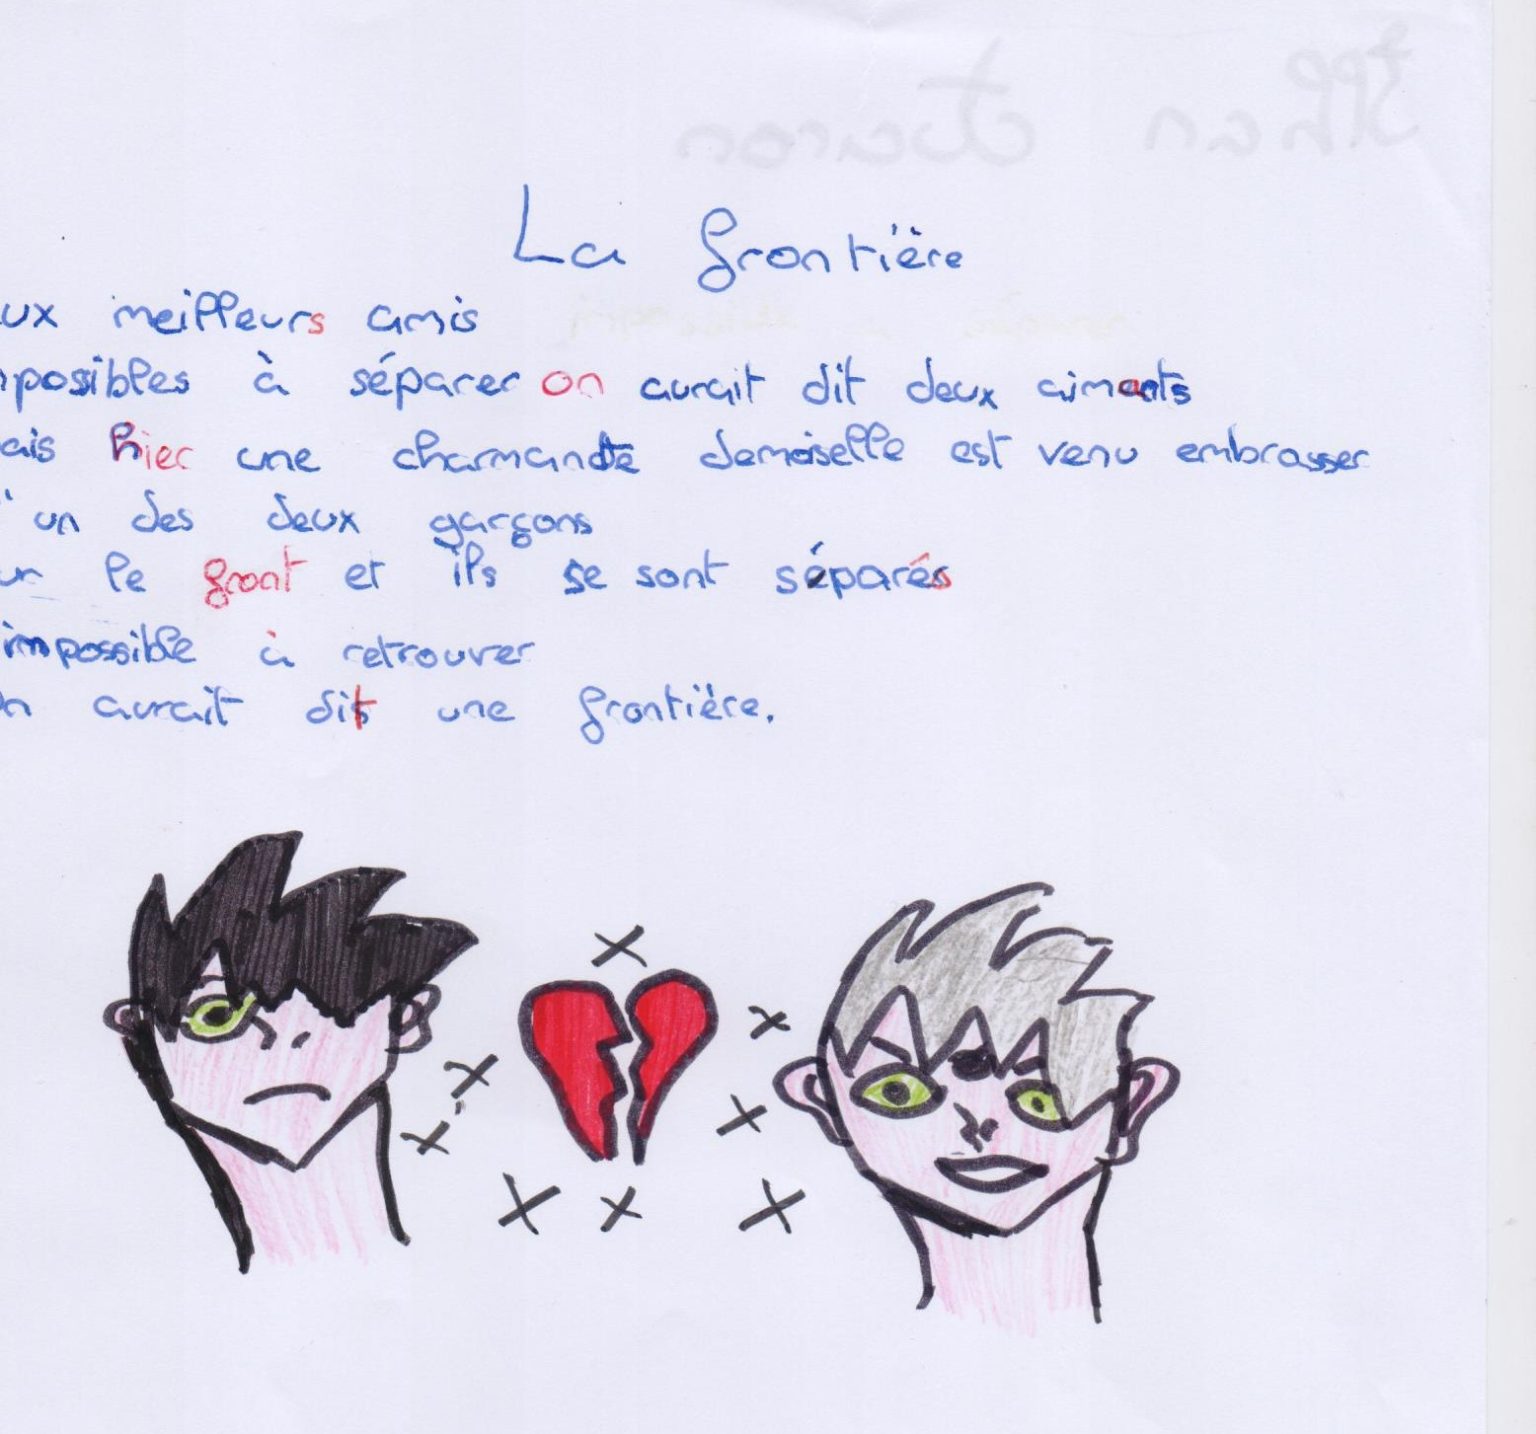 La frontière
ux meilleurs amis
mpossibles à séparer on aurait dit deux aimants
ais hier une charmante demoiselle est venu embrasser
l'un des deux garçons
ur le front et ils se sont séparés
impossible à retrouver
on aurait dit une frontière.